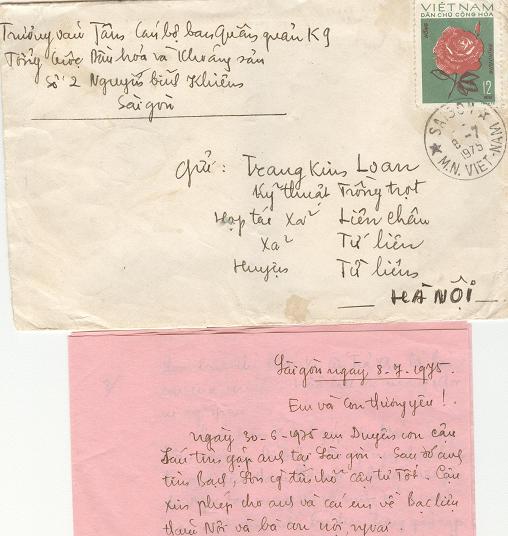 Trương văn Tân Cán bộ ban Quân quản K9
Tổng cuộc Dầu hỏa và Khoáng sản
Số 2 Nguyễn bỉnh Khiêm
Sàigòn
VIỆT NAM
DÂN CHỦ CỘNG HÒA
12
SAIGON
8-7
1975
M.N. VIET-NAM
Gửi: Trang Kim Loan
Kỹ thuật Trồng trọt
Hợp tác Xã Liên châu
Xã Tứ liên
Huyện Từ liêm
HÀ NỘI
Sàigòn ngày 8.7.1975.
Em và Con thương yêu!
Ngày 30-6-1975 em Duyên con cậu
Sáu tìm gặp anh tại Sài gòn. Sau đó anh
tìm Bạch, Sơn cơ tìm chỗ cậu tư Tốt. Cậu
xin phép cho anh và các em về Bạc liêu
thăm Nội và bà con nội, ngoại.